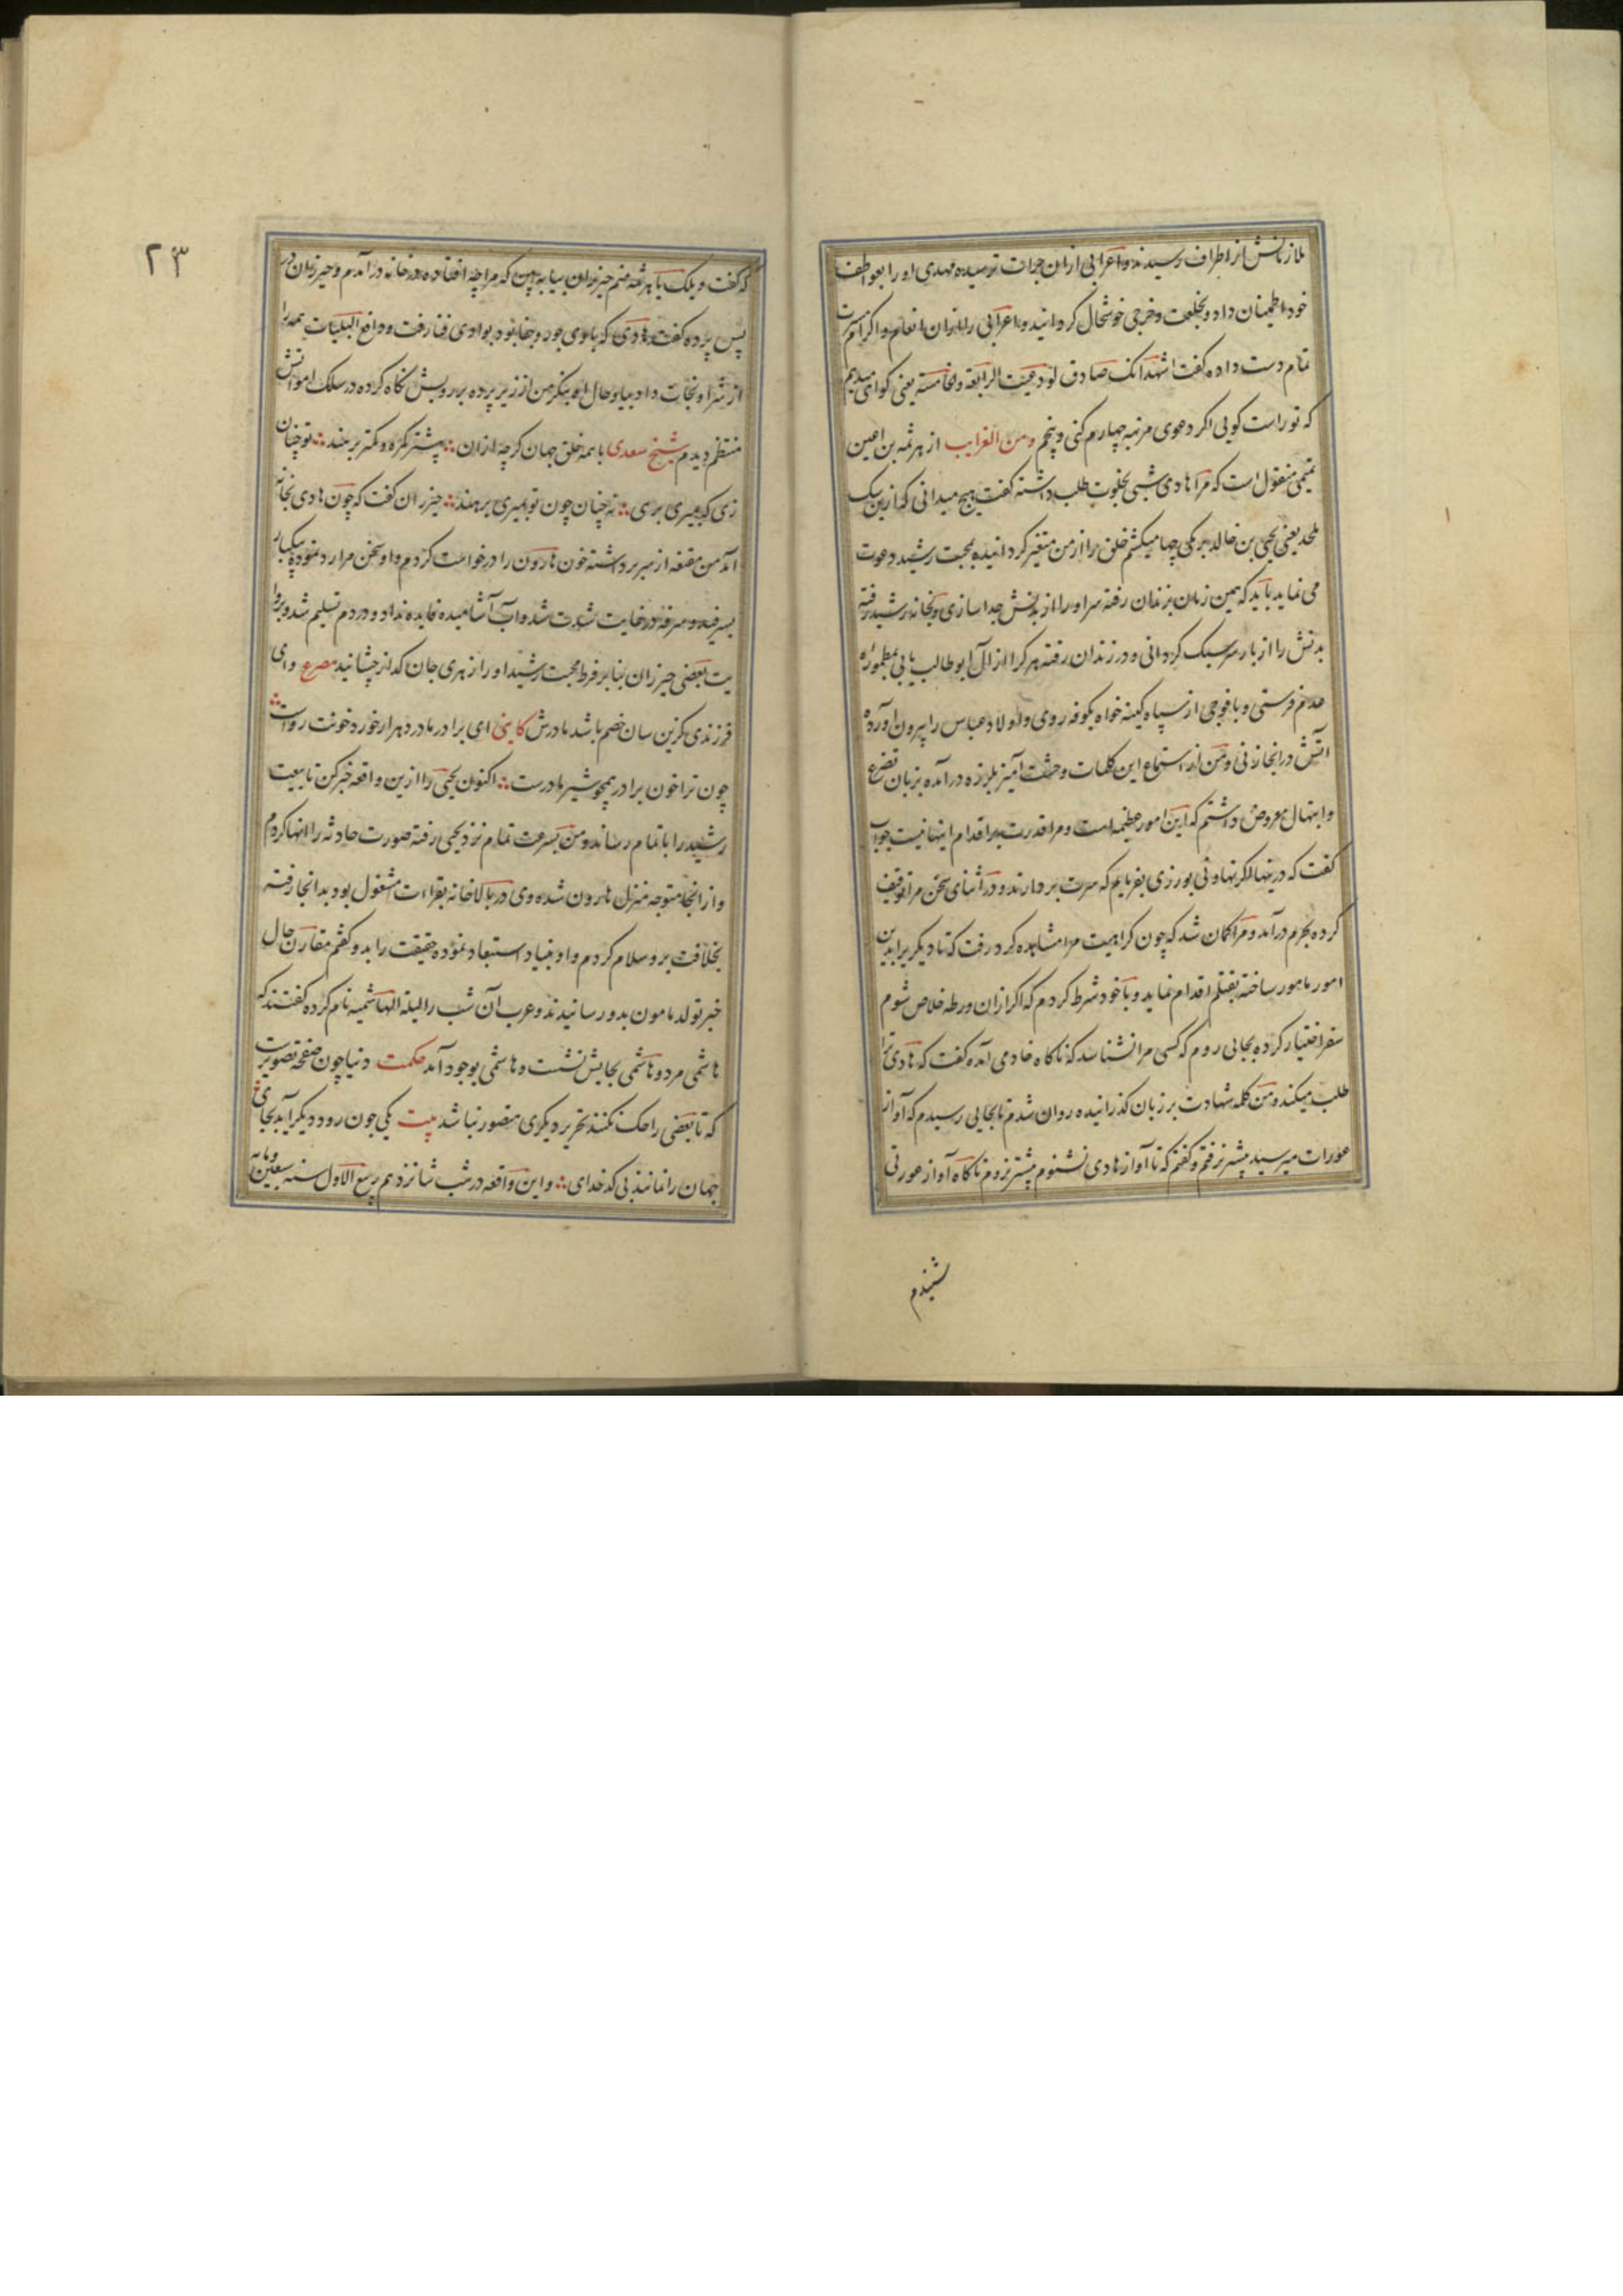 ملازمانش از اطراف رسیدند و اعرابی ازان جرات ترسیده مهدی او را بعواطف
خود اطمینان داد و بخلعت و خرجی خوشحال کردانید و اعرابی را ازان انعام و اکرام مسرت
تمام دست داده کفت اشهد انک صادق لو دعیت الرابعة والخامسة یعنی کواهی میدهم
که تو راست کویی اکر دعوی مرتبه چهارم کنی و پنجم ومن الغرایب از هرثمه بن اعین
تمیمی منقولست که مرا هادی شبی بخلوت طلب داشته کفت هیچ میدانی که ازین سک
ملحد یعنی یحیی بن خالد برمکی چها میکشم خلق را از من متغیر کردانیده بمحبت رشید دعوت
می نماید باید که همین زمان بزندان رفته سر او را از بدنش جدا سازی و بخانه رشید رفته
بدنش را از بار سر سبک کردانی و در زندان رفته هر کرا از آل ابو طالب یابی بمطموره
عدم فرستی و با فوجی از سپاه کینه خواه بکوفه روی و اولاد عباس را بیرون آورده
آتش در انجا زنی و من از استماع این کلمات وحشت آمیز بلرزه درآمده بزبان تضرع
و ابتهال معروض داشتم که این امور عظیمه است و مرا قدرت بر اقدام اینها نیست جواب
کفت که درینها اکر تهاونی بورزی بفرمایم که سرت بردارند و در اثنای سخن مرا توقیف
کرده بحرم درآمد و مرا کمان شد که چون کراهیت مرا مشاهده کرد رفت که تا دیکریرا بدین
امور مامور ساخته بقتلم اقدام نماید و با خود شرط کردم که اکر ازان ورطه خلاص شوم
سفر اختیار کرده بجایی روم که کسی مرا نشناسد که ناکاه خادمی آمده کفت که هادی ترا
طلب میکند و من کلمه شهادت بر زبان کذرانیده روان شدم تا بجایی رسیدم که آواز
عورات میرسید پیشتر نرفتم و کفتم که تا آواز هادی نشنوم پیشتر نروم ناکاه آواز عورتی
شنیدم
۲۳
که کفت ویلک یا هرثمه منم خیزران بیا به بین که مرا چه افتاده در خانه درآمدم و خیزران در
پس پرده کفت هادی که بادی جور و جفا بود بوادی فنا رفت و دافع البلیات همه را
از شر او نجات داد بیا و حال او بنکر من از زیر پرده بر رویش نکاه کرده در سلک امواتش
منتظم دیدم شیخ سعدی با همه خلق جهان کرچه ازان پیشتر کمره و کمتر برهند تو چنان
زی که بمیری برهی نه چنان چون تو بمیری برهند خیزران کفت که چون هادی بخانه
آمد من مقنعه از سر برداشته خون هارون را درخواست کردم و او سخن مرا رد نموده بیکبار
بسرفید و سرفه در غایت شدت شد و آب آشامیده فایده نداد و در دم تسلیم شد و بروا
یت بعضی خیزران بنا بر فرط محبت رشید او را زهری جان کداز چشانید مصرع وای
فرزندی کزین سان خصم باشد مادرش کاتبی ای برادر مادر دهر ار خورد خونت رواست
چون ترا خون برادر همچو شیر مادرست اکنون یحیی را ازین واقعه خبر کن تا بیعت
رشید را باتمام رساند و من بسرعت تمام نزد یحیی رفته صورت حادثه را انها کردم
و از انجا متوجه منزل هارون شده وی در بالاخانه بقراءت مشغول بود بدانجا رفته
بخلافت برو سلام کردم و او بنیاد استبعاد نموده حقیقت را بدو کفتم مقارن حال
خبر تولد مامون بدو رسانیدند و عرب آن شب را لیلة الهاشمیه نام کرده کفتند که
هاشمی مرد و هاشمی بجایش نشست و هاشمی بوجود آمد حکمت دنیا چون صفحه تصویرست
که تا بعضی را حک نکنند تحریر دیکری متصور نباشد بیت یکی چون رود دیکر آید بجای
جهان را نمانند بی کدخدای و این واقعه در شب شانزدهم ربیع الاول سنه سبعین و مایه